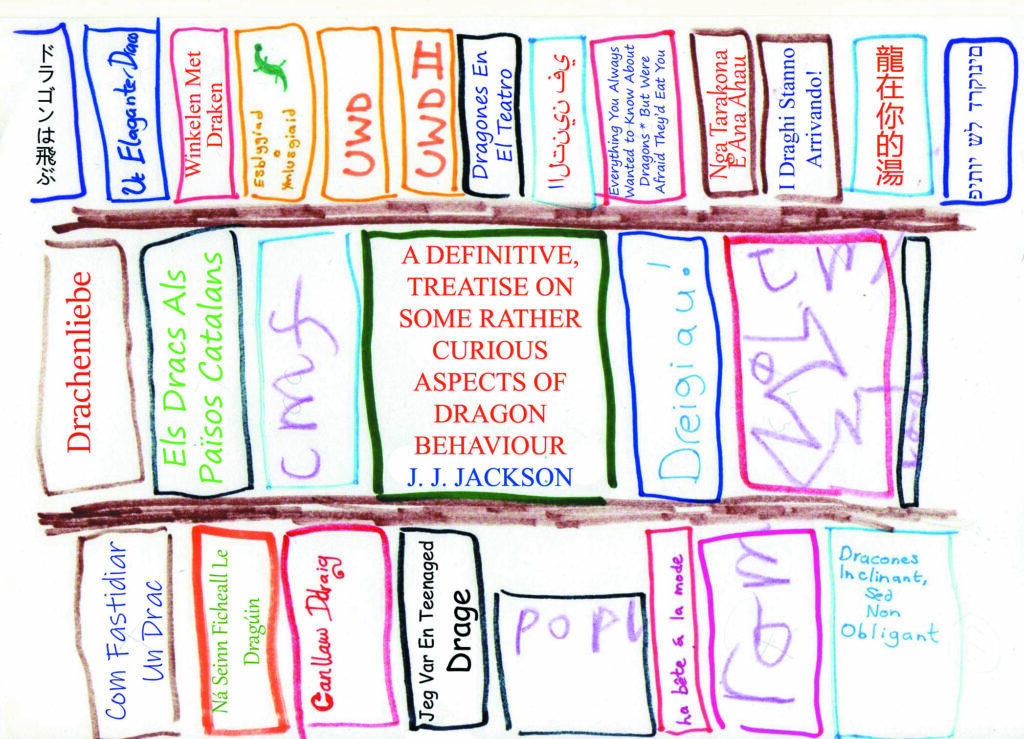 ドラゴンは飛ぶ
Ut Elaganter Draco
Winkelen Met
Draken
Esblygiad
Ymlusgiaid
UWD
UWD II
Dragones En
El Teatro
التنين في
Everything You Always
Wanted to Know About
Dragons * But Were
Afraid They'd Eat You
Nga Tarakona
E Ana Ahau
I Draghi Stanno
Arrivando!
龍在你的湯
Drachenliebe
Els Dracs Als
Països Catalans
cmf
A DEFINITIVE,
TREATISE ON
SOME RATHER
CURIOUS
ASPECTS OF
DRAGON
BEHAVIOUR
J. J. JACKSON
Dreigiau!
Com Fastidiar
Un Drac
Ná Seinn Ficheall Le
Dragúin
Canllaw Ddraig
Jeg Var En Teenaged
Drage
POPL
La bête à la mode
rom
Dracones
Inclinant,
Sed
Non
Obligant